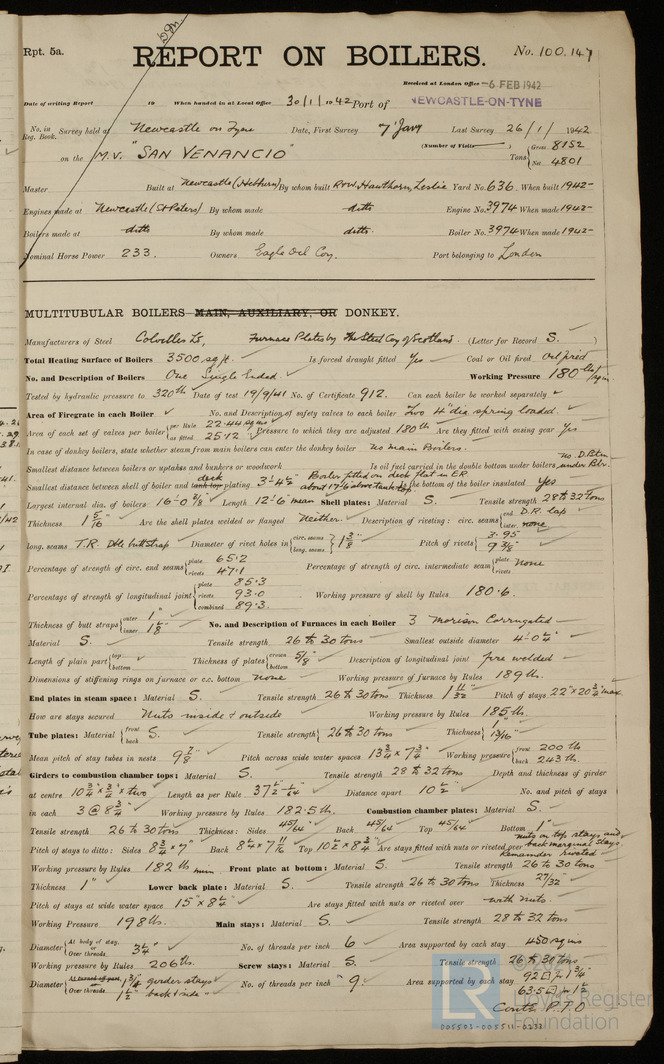 Rpt. 5a.
REPORT ON BOILERS.
No. 100.147
Received at London Office -6 FEB 1942
Date of writing Report 19 When handed in at Local Office 30/1/1942 Port of NEWCASTLE-ON-TYNE
No. in Reg. Book. Survey held at Newcastle on Tyne Date, First Survey 7 Jany Last Survey 26/1/1942
(Number of Visits )
on the M.V. "SAN VENANCIO" Tons { Gross 8152 Net 4801
Master Built at Newcastle (Hebburn) By whom built R&W. Hawthorn, Leslie Yard No. 636 When built 1942
Engines made at Newcastle (St Peters) By whom made ditto Engine No. 3974 When made 1942
Boilers made at ditto By whom made ditto Boiler No. 3974 When made 1942
Nominal Horse Power 233. Owners Eagle Oil Coy. Port belonging to London
MULTITUBULAR BOILERS MAIN, AUXILIARY, OR DONKEY.
Manufacturers of Steel Colvilles Ld, Furnace Plates by The Steel Coy of Scotland. (Letter for Record S. )
Total Heating Surface of Boilers 3500 sq ft. Is forced draught fitted Yes Coal or Oil fired Oil fired
No. and Description of Boilers One Single Ended Working Pressure 180 lbs/sq in
Tested by hydraulic pressure to 320 lb Date of test 19/9/41 No. of Certificate 912. Can each boiler be worked separately ✓
Area of Firegrate in each Boiler ✓ No. and Description of safety valves to each boiler Two 4" dia spring loaded.
Area of each set of valves per boiler { per Rule 22.44 sq ins as fitted 25.12 Pressure to which they are adjusted 180 lb Are they fitted with easing gear Yes
In case of donkey boilers, state whether steam from main boilers can enter the donkey boiler No main Boilers.
Smallest distance between boilers or uptakes and bunkers or woodwork Is oil fuel carried in the double bottom under boilers no D. Bttm under Blr.
Smallest distance between shell of boiler and tank top deck plating 3'-4½" Boiler fitted on deck flat in E.R. about 17'6 above tank top. Is the bottom of the boiler insulated Yes
Largest internal dia. of boilers 16'-0 ⅞" Length 12'-6" mean Shell plates: Material S. Tensile strength 28 to 32 tons
Thickness 1 5/16" Are the shell plates welded or flanged Neither. Description of riveting: circ. seams { end D.R. lap inter. none
long. seams T.R. Dble buttstrap Diameter of rivet holes in { circ. seams long. seams } 1 3/8" Pitch of rivets { 3.95 9 3/8"
Percentage of strength of circ. end seams { plate 65.2 rivets 47.1 Percentage of strength of circ. intermediate seam { plate rivets none
Percentage of strength of longitudinal joint { plate 85.3 rivets 93.0 combined 89.3. Working pressure of shell by Rules 180.6.
Thickness of butt straps { outer 1" inner 1 1/8" No. and Description of Furnaces in each Boiler 3 Morison Corrugated
Material S. Tensile strength 26 to 30 tons Smallest outside diameter 4'-0¼"
Length of plain part { top bottom Thickness of plates { crown bottom } 5/8" Description of longitudinal joint fire welded
Dimensions of stiffening rings on furnace or c.c. bottom none Working pressure of furnace by Rules 189 lb.
End plates in steam space: Material S. Tensile strength 26 to 30 tons Thickness 1 11/32" Pitch of stays 22" x 20¾" max.
How are stays secured Nuts inside & outside Working pressure by Rules 185 lb.
Tube plates: Material { front back S. Tensile strength { 26 to 30 tons Thickness { 1" 13/16"
Mean pitch of stay tubes in nests 9 7/8" Pitch across wide water spaces 13¾" x 7¾" Working pressure { front 200 lb back 243 lb.
Girders to combustion chamber tops: Material S. Tensile strength 28 to 32 tons Depth and thickness of girder
at centre 10¾" x ¾" x two Length as per Rule Distance apart 10½" No. and pitch of stays
in each 3 @ 8¾" Working pressure by Rules 182.5 lb. Combustion chamber plates: Material S.
Tensile strength 26 to 30 tons Thickness: Sides 45/64" Back 45/64" Top 45/64" Bottom 1"
Pitch of stays to ditto: Sides Back Top 10½" x 8¾" Are stays fitted with nuts or riveted over Nuts on top stays and back marginal stays Remainder riveted
Working pressure by Rules 182 lb min. Front plate at bottom: Material S. Tensile strength 26 to 30 tons
Thickness 1" Lower back plate: Material S. Tensile strength 26 to 30 tons Thickness 27/32"
Pitch of stays at wide water space 15" x 8¼" Are stays fitted with nuts or riveted over with nuts.
Working Pressure 198 lb. Main stays: Material S. Tensile strength 28 to 32 tons
Diameter { At body of stay, or Over threads 3¼" No. of threads per inch 6 Area supported by each stay 450 sq ins
Working pressure by Rules 206 lb. Screw stays: Material S. Tensile strength 26 to 30 tons
Diameter { At turned off part, or Over threads 1¾" girder stays 1½" back & side " No. of threads per inch 9. Area supported by each stay 92 □" - 1¾" 63.5 □" - 1½"
Contd P.T.O
LR
Lloyd's Register Foundation
005502-005511-0232